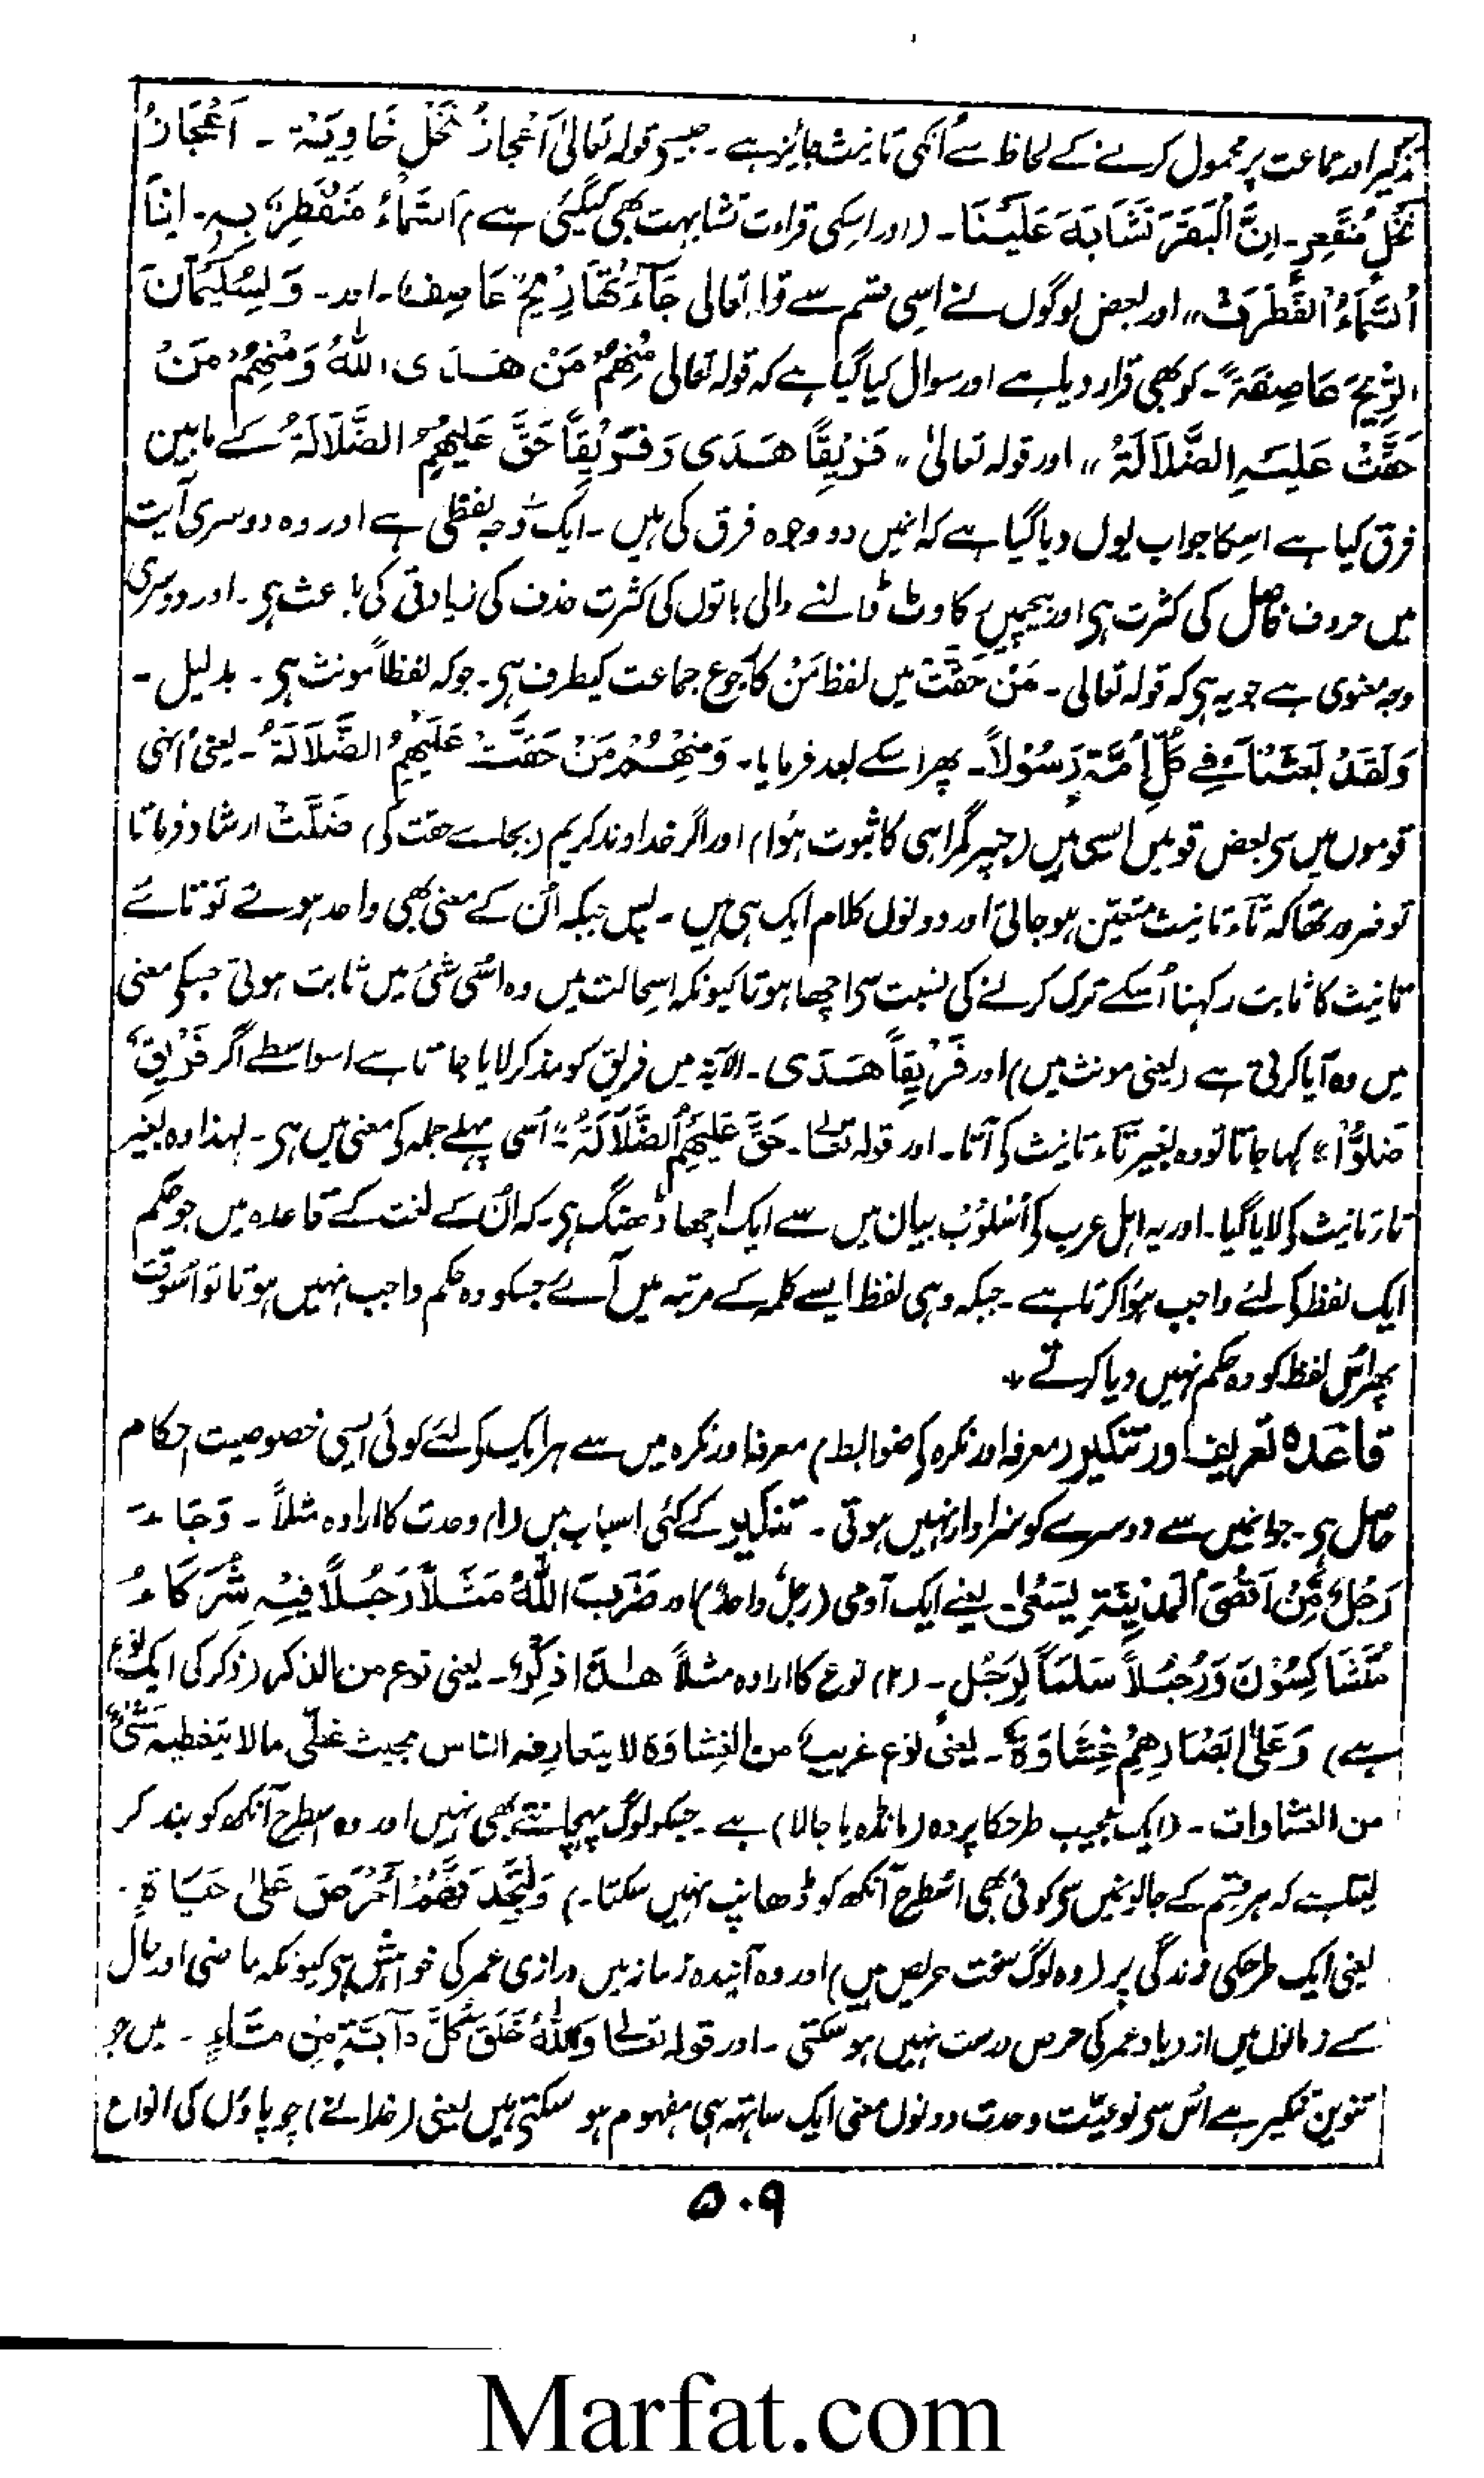 تذکیر اور جماعت پر محمول کرنے کے لحاظ سے اُنکی تانیث جائز ہے۔ جیسے قولہ تعالیٰ اَعْجَازُ نَخْلٍ خَاوِیَۃ ۔ اَعْجَازُ
نَخْلٍ مُنْقَعِرٍ۔ اِنَّ الْبَقَرَ تَشَابَہَ عَلَیْنَا۔ (اور اسکی قراءت تشابہت بھی کیگئی ہے) اَلسَّمَاءُ مُنْفَطِرٌ بِہٖ۔ اِذَا
اُلسَّمَاءُ انْفَطَرَتْ،، اور بعض لوگوں نے اسی قسم سے قولہ تعالی جَآءَتْھَا رِیْحٌ عَاصِفٌ)۔ اور۔ وَلِسُلَیْمَانَ
الرِّیْحَ عَاصِفَۃً۔ کو بھی قرار دیا ہے اور سوال کیا گیا ہے کہ قولہ تعالی مِنْھُمْ مَنْ ھَدَی اللّٰہُ وَمِنْھُمْ مَنْ
حَقَّتْ عَلَیْہِ الضَّلَالَۃُ ،، اور قولہ تعالیٰ ،، فَرِیْقًا ھَدَی وَفَرِیْقًا حَقَّ عَلَیْھِمُ الضَّلَالَۃُ کے مابین
فرق کیا ہے اسکا جواب یوں دیا گیا ہے کہ انمیں دو وجوہ فرق کی ہیں ۔ ایک وجہ لفظی ہے اور وہ دوسری آیت
میں حروف فاصل کی کثرت ہی اور بیچمیں رکاوٹ ڈالنے والی باتوں کی کثرت حذف کی زیادتی کی باعث ہی۔ اور دوسری
وجہ معنوی ہے جو یہ ہی کہ قولہ تعالی۔ مَنْ حَقَّتْ میں لفظ مَنْ کا رجوع جماعت کیطرف ہی۔ جو کہ لفظاً مونث ہی۔ بدلیل۔
وَلَقَدْ بَعَثْنَا فِیْ کُلِّ اُمَّۃٍ رَسُوْلًا۔ پھر اسکے بعد فرمایا۔ وَمِنْھُمْ مَنْ حَقَّتْ عَلَیْھِمُ الضَّلَالَۃُ۔ یعنی اُنہی
قوموں میں سی بعض قومیں ایسی ہیں (جنپر گمراہی کا ثبوت ہوا) اور اگر خداوند کریم (بجاے حقت کی) ضَلَّتْ ارشاد فرماتا
تو ضرور تھا کہ تاَء تانیث متعین ہو جاتی اور دونوں کلام ایک ہی ہیں ۔ پس جبکہ اُن کے معنی بھی واحد ہوئے تو تائے
تانیث کا ثابت رکہنا اُسکے ترک کرنے کی نسبت سی اچھا ہوتا کیونکہ اسحالت میں وہ اُسی شئی میں ثابت ہوتی جسکی معنی
میں وہ آیا کرتی ہے (یعنی مونث میں) اور فَرِیْقًا ھَدَی ۔ الآیۃ میں فریق کو مذکر لایا جاتا ہے اسواسطے اگر فَرِیْقٌ
ضَلُّوْا،، کہا جاتا تو وہ بغیر تاَء تانیث کی آتا۔ اور قولہ تعالےٰ۔ حَقَّ عَلَیْھِمُ الضَّلَالَۃُ،، اُسی پہلے جملہ کی معنی میں ہی۔ لہذا وہ بغیر
تاء تانیث کی لایا گیا۔ اور یہ اہل عرب کی اُسْلُوْبْ بیان میں سے ایک اچھا ڈھنگ ہی۔ کہ اُن کے لغت کے قاعدہ میں جو حکم
ایک لفظ کی لئے واجب ہوا کرتا ہے ۔ جبکہ وہی لفظ ایسے کلمہ کے مرتبہ میں آئے جسکو وہ حکم واجب نہیں ہوتا تو اسوقت
پھر اُس لفظ کو وہ حکم نہیں دیا کرتے +
قاعدہ تعریف اور تنکیر (معرفہ اور نکرہ کی ضوابط) معرفہ اور نکرہ میں سے ہر ایک کی لئے کوئی ایسی خصوصیت احکام
حاصل ہی۔ جو انمیں سے دوسرے کو سزاوار نہیں ہوتی ۔ تنکیر کے کئی اسباب ہیں (۱) وحدت کا ارادہ مثلاً ۔ وَجَاءَ
رَجُلٌ مِّنْ اَقْصَی الْمَدِیْنَۃِ یَسْعٰی۔ یعنے ایک آدمی (رجلٌ واحدٌ) اور ضَرَبَ اللّٰہُ مَثَلًا رَجُلًا فِیْہِ شُرَکَاءُ
مُتَشَاکِسُوْنَ وَرَجُلًا سَلَمًا لِرَجُلٍ۔ (۲) نوع کا ارادہ مثلاً ھٰذَا ذِکْرٌ۔ یعنی نوع من الذکر (ذکر کی ایک نوع
ہے) وَعَلٰی اَبْصَارِھِمْ غِشَاوَۃٌ۔ یعنی نوع غریب من الغشاوۃ لا یتعارفہ الناس بحیث غطّی مالا یتغطیہ شَیْءٌ
من الغشاوات۔ (ایک عجیب طرحکا پردہ (مانڈہ یا جالا) ہے ۔ جسکو لوگ پہچانتے بھی نہیں اور وہ اسطرح آنکھ کو بند کر
لیتا ہے کہ ہر قسم کے جالونمیں سی کوئی بھی اسطرح آنکھ کو ڈھانپ نہیں سکتا۔) وَلَتَجِدَنَّھُمْ اَحْرَصَ عَلٰی حَیَاۃٍ۔
یعنی ایک طرحکی زندگی پر (وہ لوگ سخت حریص ہیں) اور وہ آئیندہ زمانہ میں درازی عمر کی خواہش ہی کیونکہ ماضی اور حال
کے زمانوں میں ازدیاد عمر کی حرص درست نہیں ہو سکتی ۔ اور قولہ تعالےٰ وَاللّٰہُ خَلَقَ کُلَّ دَآبَّۃٍ مِنْ مَّاءٍ ۔ میں جو
تنوین تنکیر ہے اُس سی نوعیّت وحدت دونوں معنی ایک ساتھہ ہی مفہوم ہو سکتی ہیں یعنی (خدا نے) چوپاؤں کی انواع
۵۰۹
Marfat.com